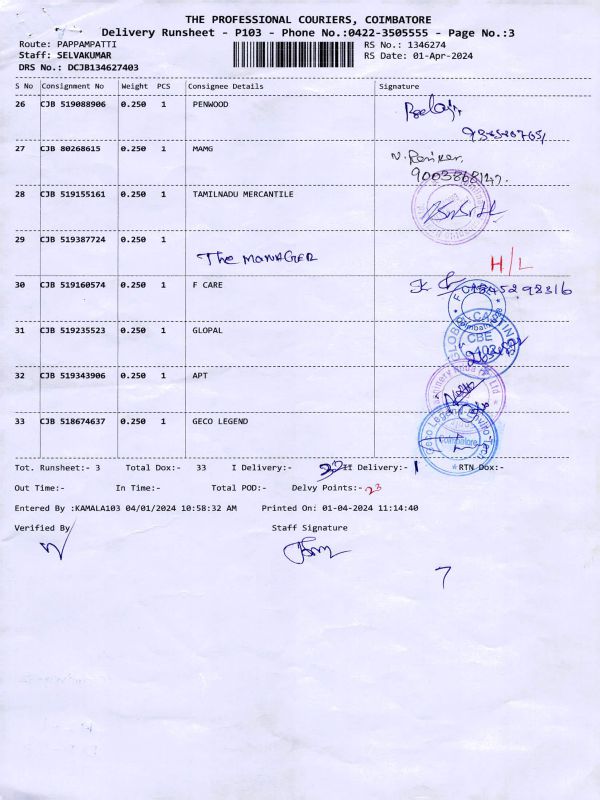 THE PROFESSIONAL COURIERS, COIMBATORE
Delivery Runsheet - P103 - Phone No.:0422-3505555 - Page No.:3
Route: PAPPAMPATTI RS No.: 1346274
Staff: SELVAKUMAR RS Date: 01-Apr-2024
DRS No.: DCJB134627403
S No Consignment No Weight PCS Consignee Details Signature
26 CJB 519088906 0.250 1 PENWOOD
27 CJB 80268615 0.250 1 MAMG
9003868147.
28 CJB 519155161 0.250 1 TAMILNADU MERCANTILE
29 CJB 519387724 0.250 1
The MANAGER H/L
30 CJB 519160574 0.250 1 F CARE
31 CJB 519235523 0.250 1 GLOPAL
CBE
32 CJB 519343906 0.250 1 APT
33 CJB 518674637 0.250 1 GECO LEGEND
Geco Legend
Coimbatore
Tot. Runsheet:- 3 Total Dox:- 33 I Delivery:- 32 II Delivery:- 1 RTN Dox:-
Out Time:- In Time:- Total POD:- Delvy Points:- 23
Entered By :KAMALA103 04/01/2024 10:58:32 AM Printed On: 01-04-2024 11:14:40
Verified By Staff Signature
7